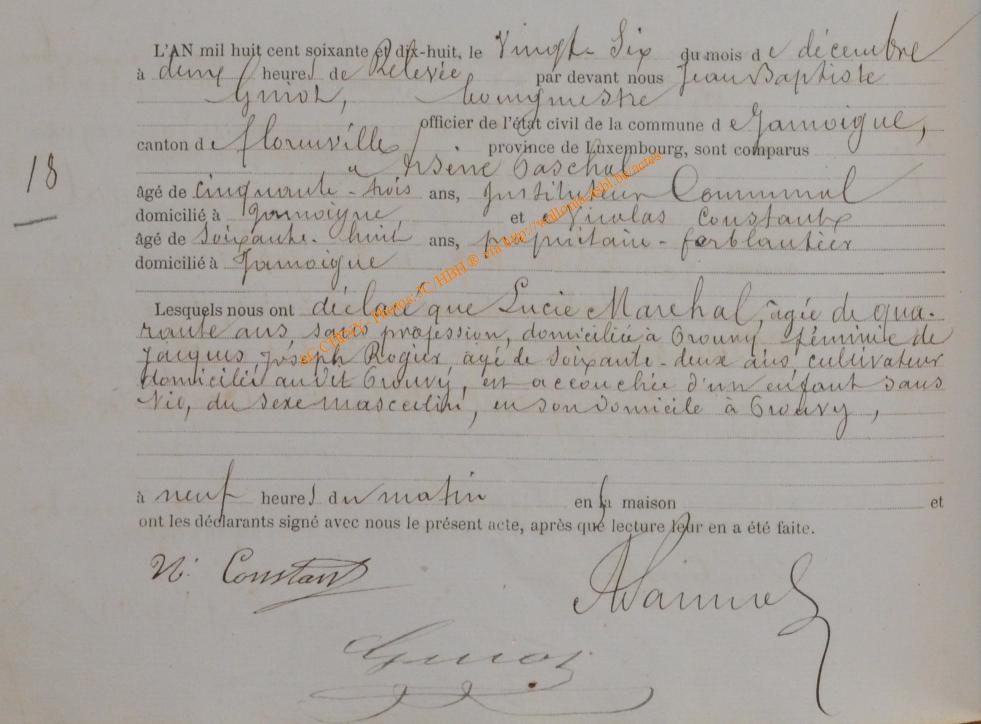 L'AN mil huit cent soixante et dix-huit, le Vingt-Six du mois de décembre
à deux heures de Relevée par devant nous Jean Baptiste
Guiot, bourgmestre
officier de l'état civil de la commune de Jamoigne,
canton de florenville province de Luxembourg, sont comparus
18
Arsène Paschal
âgé de Cinquante-trois ans, Instituteur Communal
domicilié à Jamoigne et Nicolas Constant
âgé de Soixante-huit ans, propriétaire-ferblantier
domicilié à Jamoigne
Lesquels nous ont déclaré que Lucie Marchal, âgée de qua-
rante ans sans profession, domiciliée à Prouvy femme de
Jacques Joseph Rogier, agé de Soixante-deux ans, cultivateur
domicilié au dit Prouvy, est accouchée d'un enfant sans
Vie, du sexe masculin, en son domicile à Prouvy,
à neuf heures du matin en sa maison et
ont les déclarants signé avec nous le présent acte, après que lecture leur en a été faite.
N. Constant
Guiot